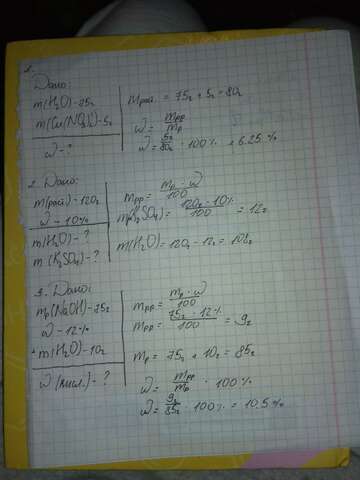 1.
Дано:
m(H₂O)-75г
m(Cu(NO₃)₂)-5г
ω-?
= 75г + 5г = 80г
ω = mрр/mр
ω = 5г/80г · 100% = 6.25 %
2. Дано:
m(рай)-120г
ω-10%
m(H₂O)-?
m(K₂SO₄)-?
mрр = mр · ω/100
m(K₂SO₄) = 120г · 10%/100 = 12г
m(H₂O) = 120г - 12г = 108г
3. Дано:
mр(NaOH)-75г
ω-12%
+m(H₂O)-10г
ω -?
mрр = mр · ω/100
mрр = 75г · 12%/100 = 9г
mр = 75г + 10г = 85г
ω = mрр/mр · 100%
ω = 9г/85г · 100% = 10.5 %